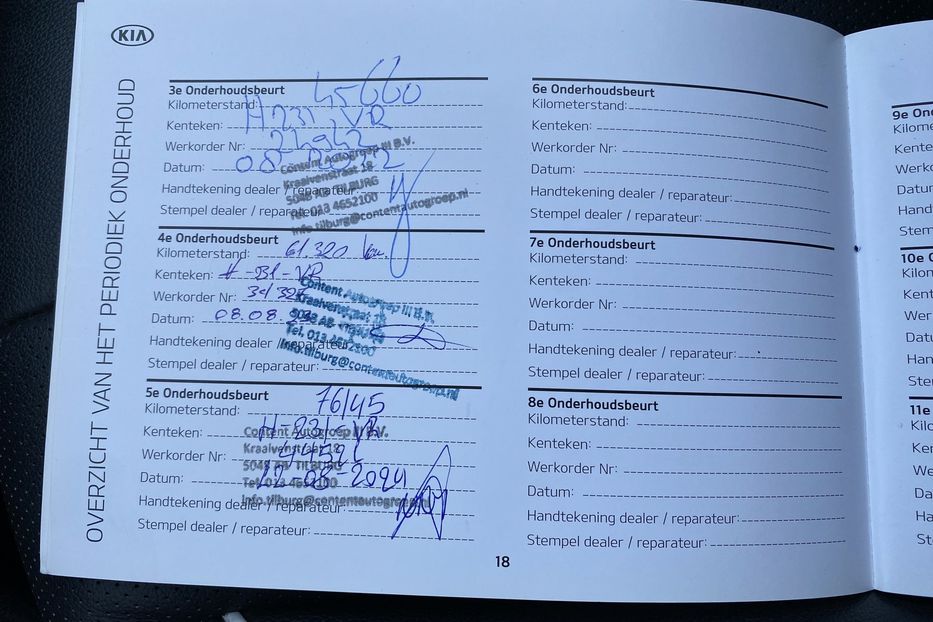 KIA
OVERZICHT VAN HET PERIODIEK ONDERHOUD
3e Onderhoudsbeurt
Kilometerstand: 45660
Kenteken: H231 VR
Werkorder Nr:
Datum: 08
Handtekening dealer / reparateur:
Stempel dealer / reparateur:
Content Autogroep III B.V.
Kraalvenstraat 18
5048 AB TILBURG
Tel. 013 4652100
info.tilburg@contentautogroep.nl
4e Onderhoudsbeurt
Kilometerstand: 61.320 km.
Kenteken: H-231-VR
Werkorder Nr: 34327
Datum: 08.08.
Handtekening dealer / reparateur:
Stempel dealer / reparateur:
Content Autogroep III B.V.
Kraalvenstraat 18
5048 AB TILBURG
Tel. 013 4652100
info.tilburg@contentautogroep.nl
5e Onderhoudsbeurt
Kilometerstand: 76145
Kenteken: H-231-VR
Werkorder Nr:
Datum: 22-08-2024
Handtekening dealer / reparateur:
Stempel dealer / reparateur:
Content Autogroep III B.V.
Kraalvenstraat 18
5048 AB TILBURG
Tel. 013 4652100
info.tilburg@contentautogroep.nl
6e Onderhoudsbeurt
Kilometerstand:
Kenteken:
Werkorder Nr:
Datum:
Handtekening dealer / reparateur:
Stempel dealer / reparateur:
7e Onderhoudsbeurt
Kilometerstand:
Kenteken:
Werkorder Nr:
Datum:
Handtekening dealer / reparateur:
Stempel dealer / reparateur:
8e Onderhoudsbeurt
Kilometerstand:
Kenteken:
Werkorder Nr:
Datum:
Handtekening dealer / reparateur:
Stempel dealer / reparateur:
18
9e On
Kilome
Kente
Werk
Datu
Hand
Stem
10e O
Kilon
Kent
Wer
Datu
Han
Ste
11e
Kilo
Ker
We
Da
Ha
St